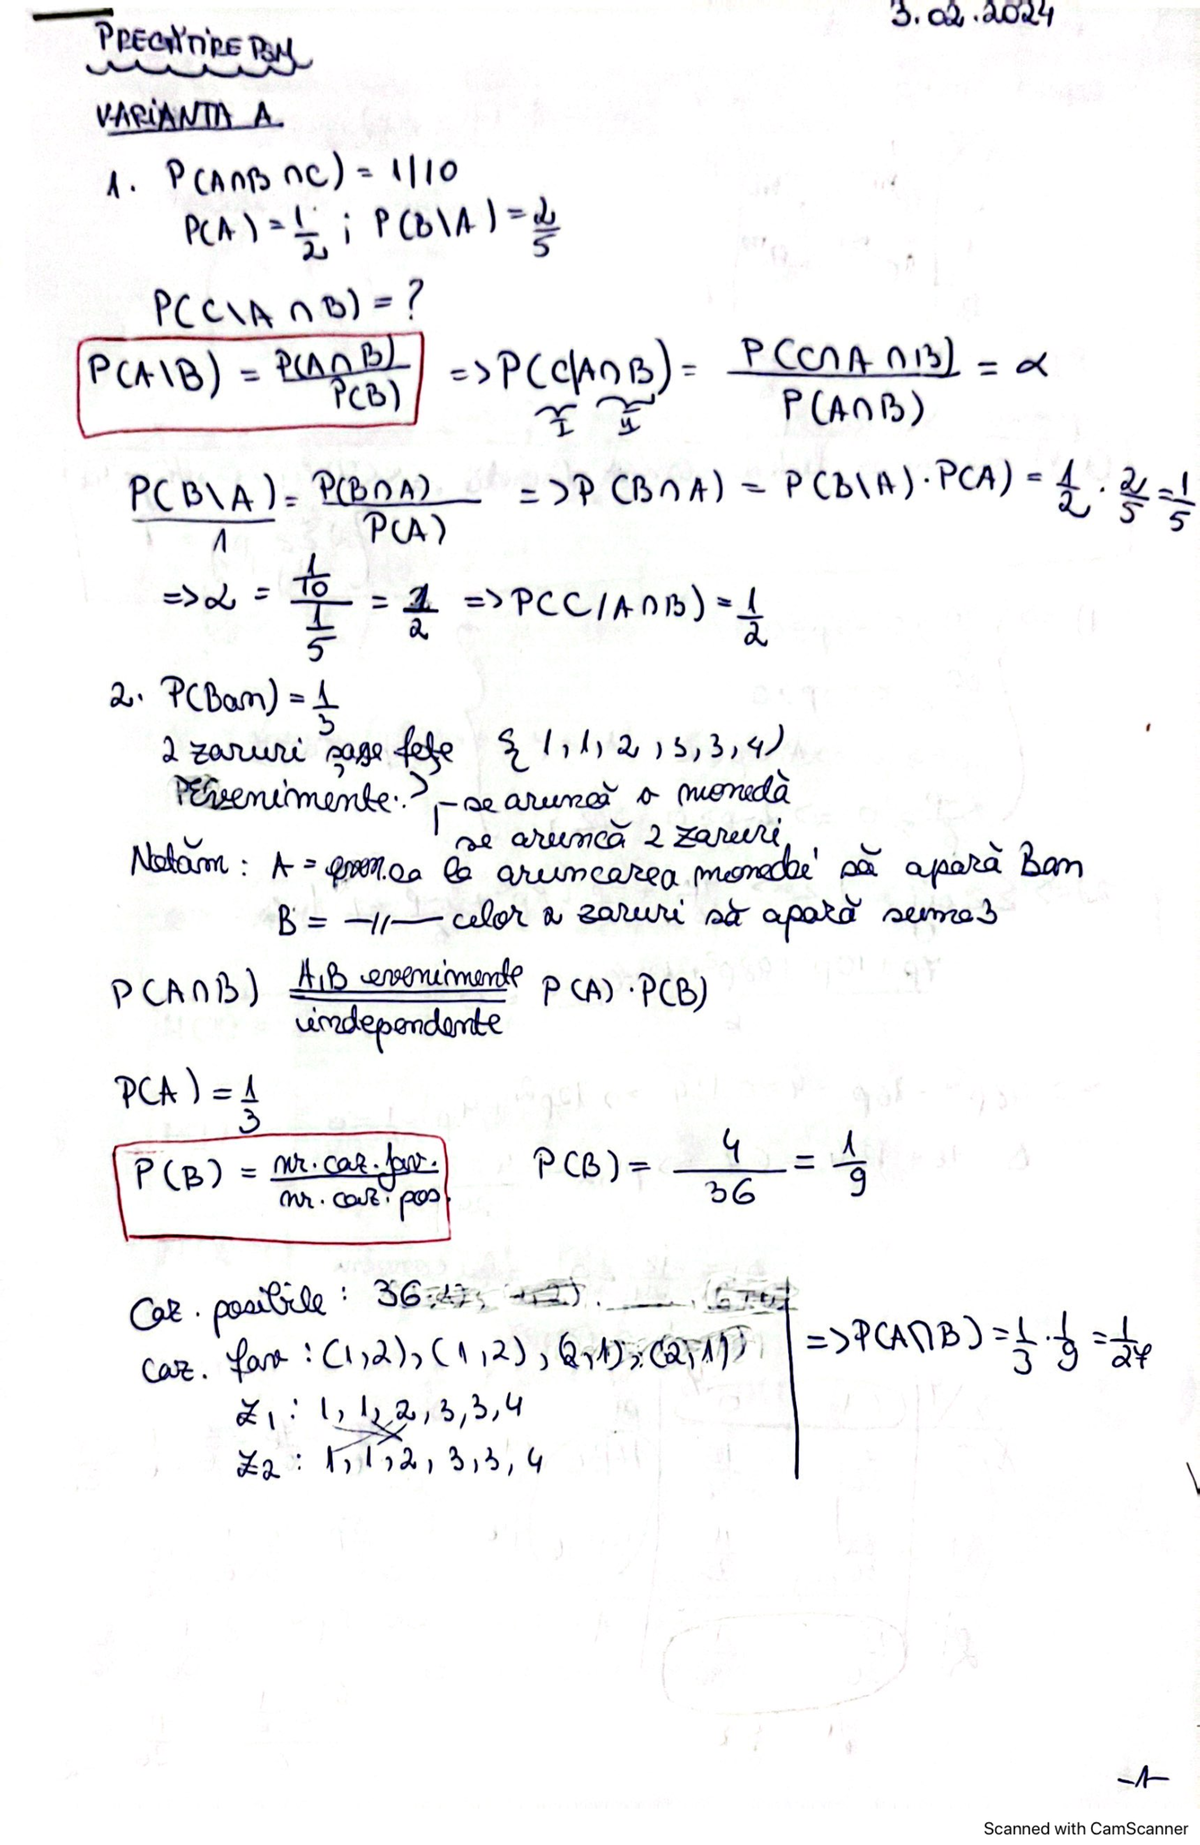 3.02.2024
VARIANTA A
1. P(A∩B∩C) = 1/10
P(A) = 1/2 ; P(B\A) = 2/5
P(C\A∩B) = ?
P(A\B) = P(A∩B)/P(B) => P(C/A∩B) = P(C∩A∩B)/P(A∩B) = α
I II
P(B\A)/1 = P(B∩A)/P(A) => P(B∩A) = P(B\A)·P(A) = 1/2 · 2/5 = 1/5
=> α = 1/10 / 1/5 = 1/2 => P(C/A∩B) = 1/2
2. P(Ban) = 1/3
2 zaruri șase fețe { 1, 1, 2, 3, 3, 4)
evenimente: - se aruncă o monedă
se aruncă 2 zaruri
Notăm: A = la aruncarea monedei să apară Ban
B = —//— celor 2 zaruri să apară suma 3
P(A∩B) A,B evenimente independente P(A)·P(B)
P(A) = 1/3
P(B) = nr. caz. fav. / nr. caz. pos. P(B) = 4/36 = 1/9
Caz. posibile : 36
caz. fav : (1,2), (1,2), (2,1), (2,1) => P(A∩B) = 1/3 · 1/9 = 1/27
Z1 : 1, 1, 2, 3, 3, 4
Z2 : 1, 1, 2, 3, 3, 4
-1-
Scanned with CamScanner